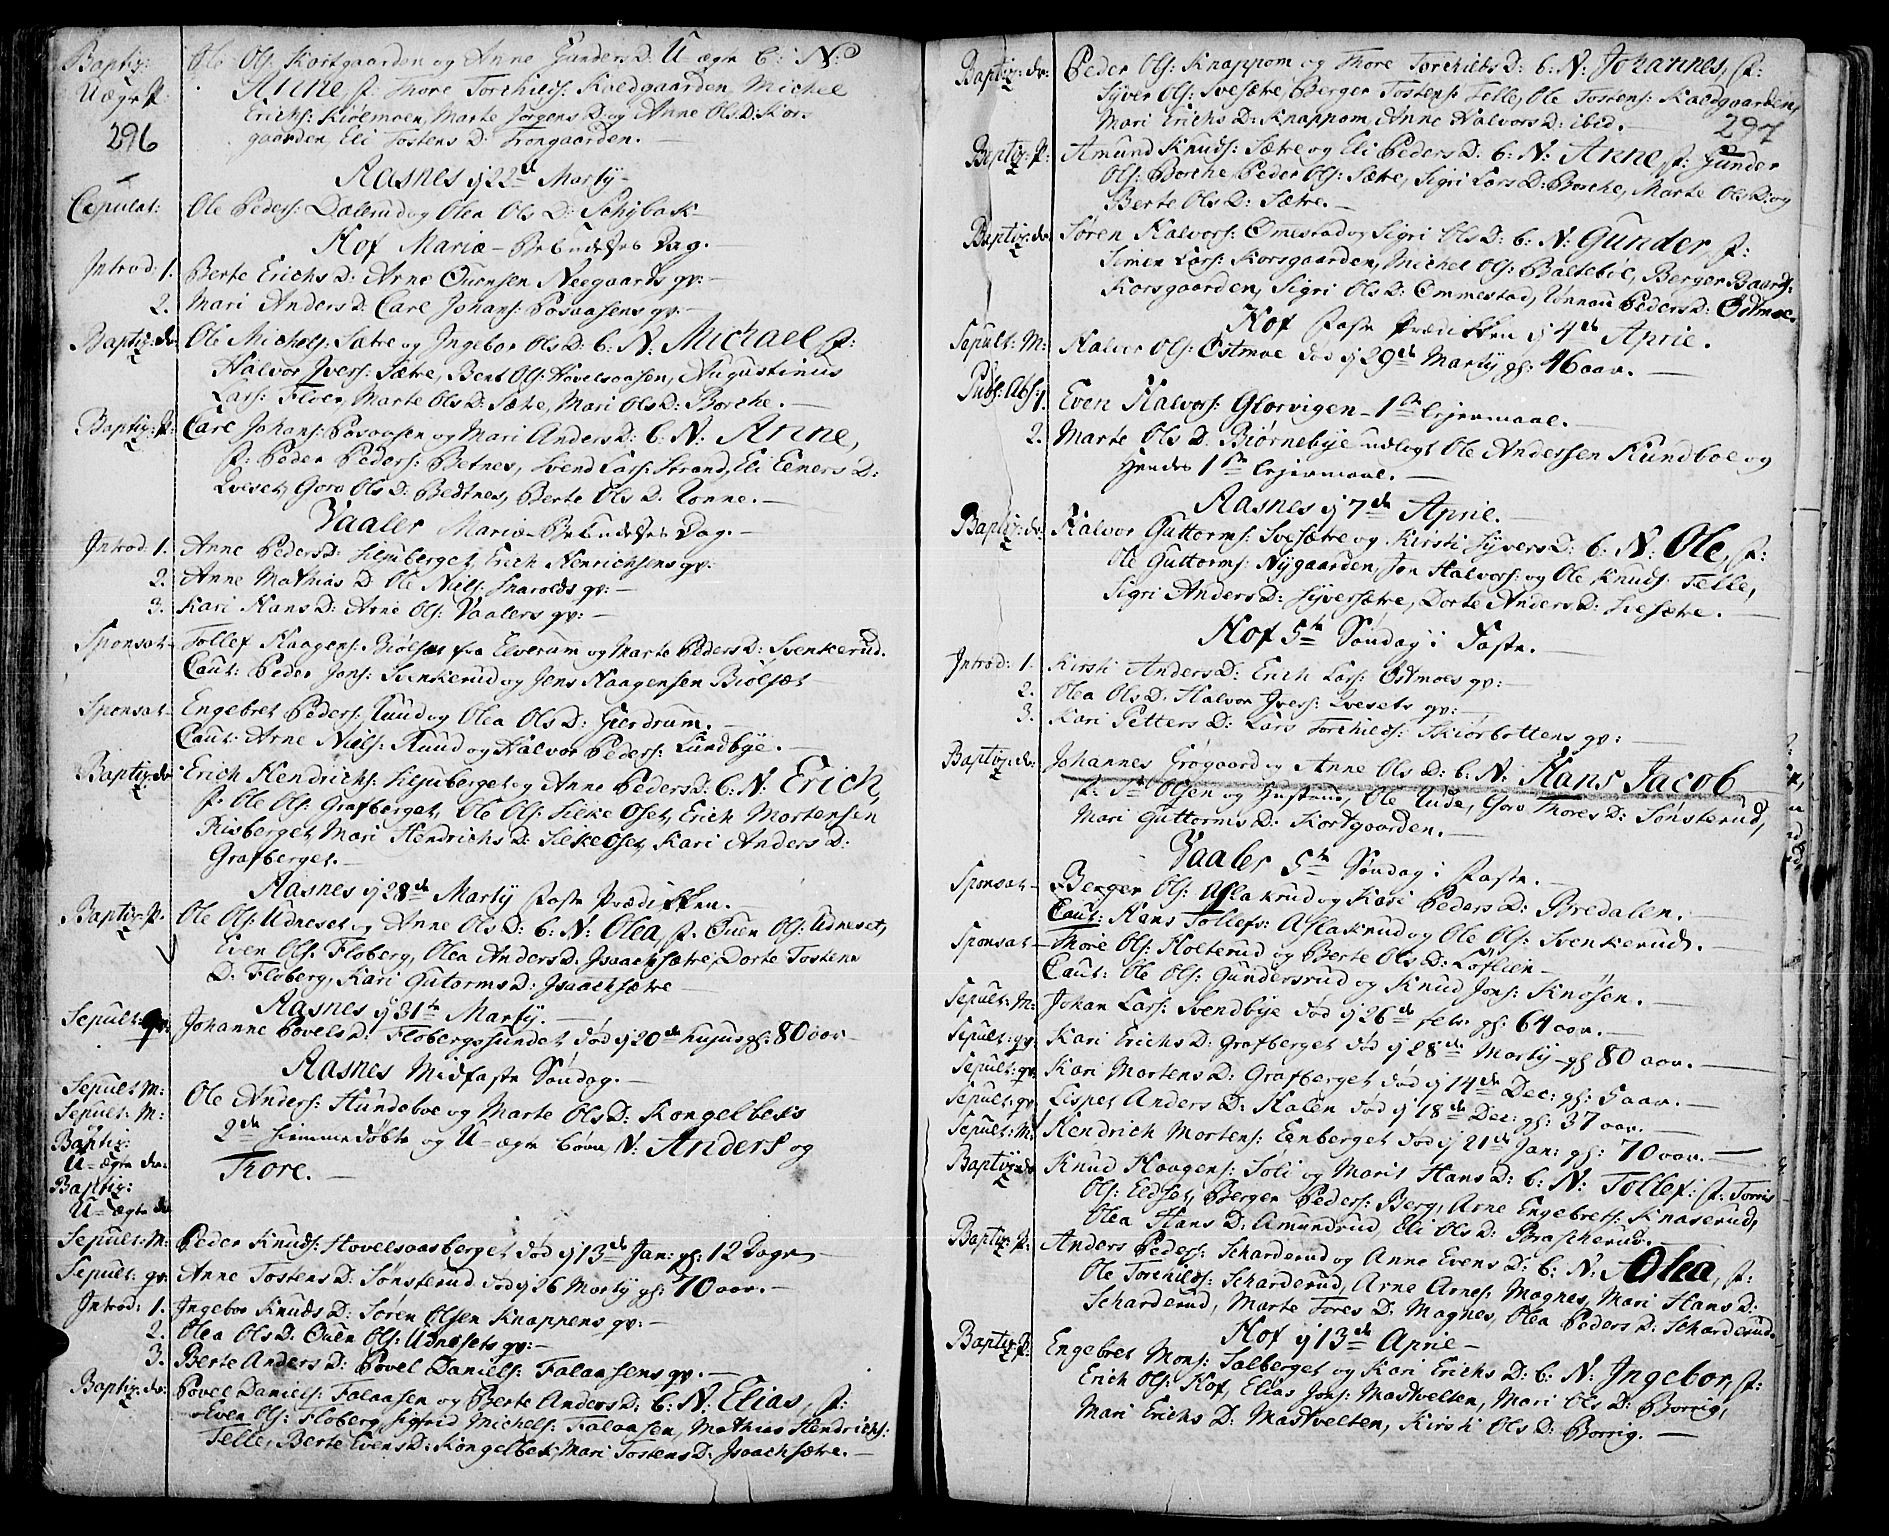 Baptiz: Ole Ols: Kortgaarden og Anne Gunders D: U-ægte b: N:
U ægte p: Anne f: Thore Torchilds: Koldgaarden, Michel
Erichs: Kiølemoen, Marte Jørgens D: og Anne Ols D: Kor-
296 gaarden, Eli Tostens D: Trongaarden. —
Aasnes ÿ 22de Martÿ —
Copulat: Ole Peders: Dalerud og Olea Ols D: Schÿbak —
Hof Mariæ Bebudelses Dag. —
Introd: 1. Berte Erichs D: Arne Ouensen Neegaards qv: —
2. Mari Anders D: Carl Johans: Posaasens qv: —
Baptiz: dr: Ole Michels: Sætre og Ingebor Ols D: b: N: Michael, f:
Halvor Ivers: Sætre, Bent Ols: Hovelsaasen, Augustinus
Lars: Floer, Marte Ols D: Sætre, Mari Ols D: Borche. —
Baptiz: p: Carl Johans: Posaasen og Mari Anders D: b: N: Anne,
f: Peder Peders: Betnes, Svend Lars: Strand, Eli Einers D:
Qveset, Goro Ols D: Bedtnes, Berte Ols D: Rønne. —
Vaaler Mariæ Bebudelses Dag. —
Introd: 1. Anne Peders D: Liluberget, Erich Henrichsens qv:
2. Anne Mathias D: Ole Niels: Snarolds qv: —
3. Kari Hans D: Arne Ols: Vaalers qv: —
Sponsat — Tollef Haagens: Biølset fra Elverum og Marte Peders D: Svenkerud.
Caut: Peder Jons: Svenkerud og Jens Haagensen Biølset
Sponsat — Engebret Peders: Ruud og Olea Ols D: Gierdrum. —
Caut: Arne Niels: Ruud og Halvor Peders: Lundbÿe. —
Baptiz: dr: Erich Hendrichs: Liljuberget og Anne Peders D: b: N: Erich,
f: Ole Ols: Grafberget, Ole Ols: Silke Oset, Erich Mortensen
Risberget, Mari Hendrichs D: Silkeoset, Kari Anders D:
Grafberget. —
Aasnes ÿ 28de Martÿ Faste Prædikken. —
Baptiz: p: Ole Ols: Udneset og Anne Ols D: b: N: Olea, f: Ouen Ols: Udneset,
Even Ols: Floberg, Olea Anders D: Isaachsætre, Dorte Tostens
D: Floberg, Kari Gutorms D: Isaachsætre —
Aasnes ÿ 31te Martÿ. —
Sepult: qv: Johanne Povels D: Flobergssundet død ÿ 20de hujus gl: 80 aar —
Aasnes Midfaste Søndag. —
Sepult M: Ole Anders: Hundeboe og Marte Ols D: Kongelbeks
Sepult: M: 2de hiemmedøbte og U-ægte børn N: Anders og
Baptiz: Thore. —
U-ægte dr:
Baptiz:
U-ægte dr
Sepult: M: Peder Knuds: Hovelsaasberget død ÿ 13de Jan: gl: 12 Dage —
Sepult: qv: Anne Tostens D: Sønsterud død ÿ 26 Martÿ gl: 70 aar. —
Introd: 1. Ingebor Knuds D: Søren Olsen Knappens qv: —
2. Olea Ols D: Ouen Ols: Udnesets qv: —
3. Berte Anders D: Povel Daniels: Falaasens qv. —
Baptiz: dr: Povel Daniels: Falaasen og Berte Anders D: b: N: Elias, f:
Even Ols: Floberg, Sigfrid Michels: Falaasen, Mathias Hendrichs:
Telle, Berte Evens D: Kongelbek, Mari Tostens D: Isaachsætre. —
Baptiz: dr: Peder Ols: Knappom og Thore Torchilds D: b: N: Johannes, f:
Siver Ols: Svesætre, Berger Tostens: Telle, Ole Tostens: Koldgaarden,
Mari Erichs D: Knappom, Anne Halvors D: ibid. — 297
Baptiz: p: Amund Knuds: Sætre og Eli Peders D: b: N: Anne, f: Gunder
Ols: Borche, Peder Ols: Sætre, Sigri Lars D: Borche, Marte Ols D: og
Berte Ols D: Sætre. —
Baptiz: dr Søren Halvors: Omestad og Sigri Ols D: b: N: Gunder, f:
Simen Lars: Korsgaarden, Michel Ols: Baltebøl, Berger Baards:
Korsgaarden, Sigri Ols D: Ommestad, Rønnau Peders D: Ostmoe.
Hof Faste Prædikken ÿ 4de Aprie. —
Sepult: M: Halvor Ols: Ostmoe død ÿ 29de Martÿ gl: 46 aar. —
Publ: Abs: 1. Even Halvors: Glorvigen — 1ste Lejermaal. —
2. Marte Ols D: Biørnebÿe udlagt Ole Andersen Hundboe og
Hendes 1ste Lejermaal. —
Aasnes ÿ 7de Aprie. —
Baptiz: dr: Halvor Guttorms: Svesætre og Kirsti Sÿvers D: b: N: Ole, f:
Ole Guttorms: Nÿgaarden, Jon Halvors: og Ole Knuds: Telle,
Sigri Anders D: Sÿversætre, Dorte Anders D: Lilsætre. —
Hof 5te Søndag i Faste. —
Introd: 1. Kirsti Anders D: Erich Lars: Ostmoes qv: —
2. Olea Ols D: Halvor Ivers: Qvesets qv: —
3. Kari Petters D: Lars Torchilds: Skiørbottens qv: —
Baptiz: dr: Johannes Grøgaard og Anne Ols D: b: N: Hans Jacob
f: Olsen og Hustrue, Ole Rude, Goro Thores D: Sønsterud,
Mari Guttorms D: Kortgaarden. —
Vaaler 5te Søndag i Faste. —
Sponsat — Berger Ols: Aslakrud og Kari Peders D: Bredalen. —
Caut: Hans Tollefs: Aslakrud og Ole Ols: Svenkerud. —
Sponsat — Thore Ols: Holterud og Berte Ols D: Loflien —
Caut: Ole Ols: Gundersrud og Knud Jons: Knøsen. —
Sepult: M: Johan Lars: Svendbÿe død ÿ 26de febr: gl: 64 aar. —
Sepult: qv: Kari Erichs D: Grafberget død ÿ 28de Martÿ — gl 80 aar. —
Sepult: qv: Kari Mortens D: Grafberget død ÿ 14de Dec: gl: 5 aar. —
Sepult: qv Lispet Anders D: Halen død ÿ 18de Dec: gl: 37 aar. —
Sepult: M: Hendrich Mortens: Eenberget død ÿ 21de Jan: gl: 70 aar. —
Baptiz: dr Knud Haagens: Søli og Marit Hans D: b: N: Tollef: f: Torris
Ols: Eldset, Berger Peders: Berg, Arne Engebrets: Knaserud,
Olea Hans D: Amundrud, Eli Ols D: Brascherud. —
Baptiz: p: Anders Peders: Scharderud og Anne Evens D: b: N: Olea, f:
Ole Torchilds: Scharderud, Arne Arnes: Magnes, Mari Hans D:
Scharderud, Marte Tores D: Magnes, Olea Peders D: Scharderud.
Hof ÿ 13de Aprie —
Baptiz: p: Engebret Mons: Salberget og Kari Erichs D: b: N: Ingebor, f:
Erich Ols: Hof, Elias Jons: Madtvelten, Mari Ols D: Borrig,
Mari Erichs D: Madtvelten, Kirsti Ols D: Borrig. —